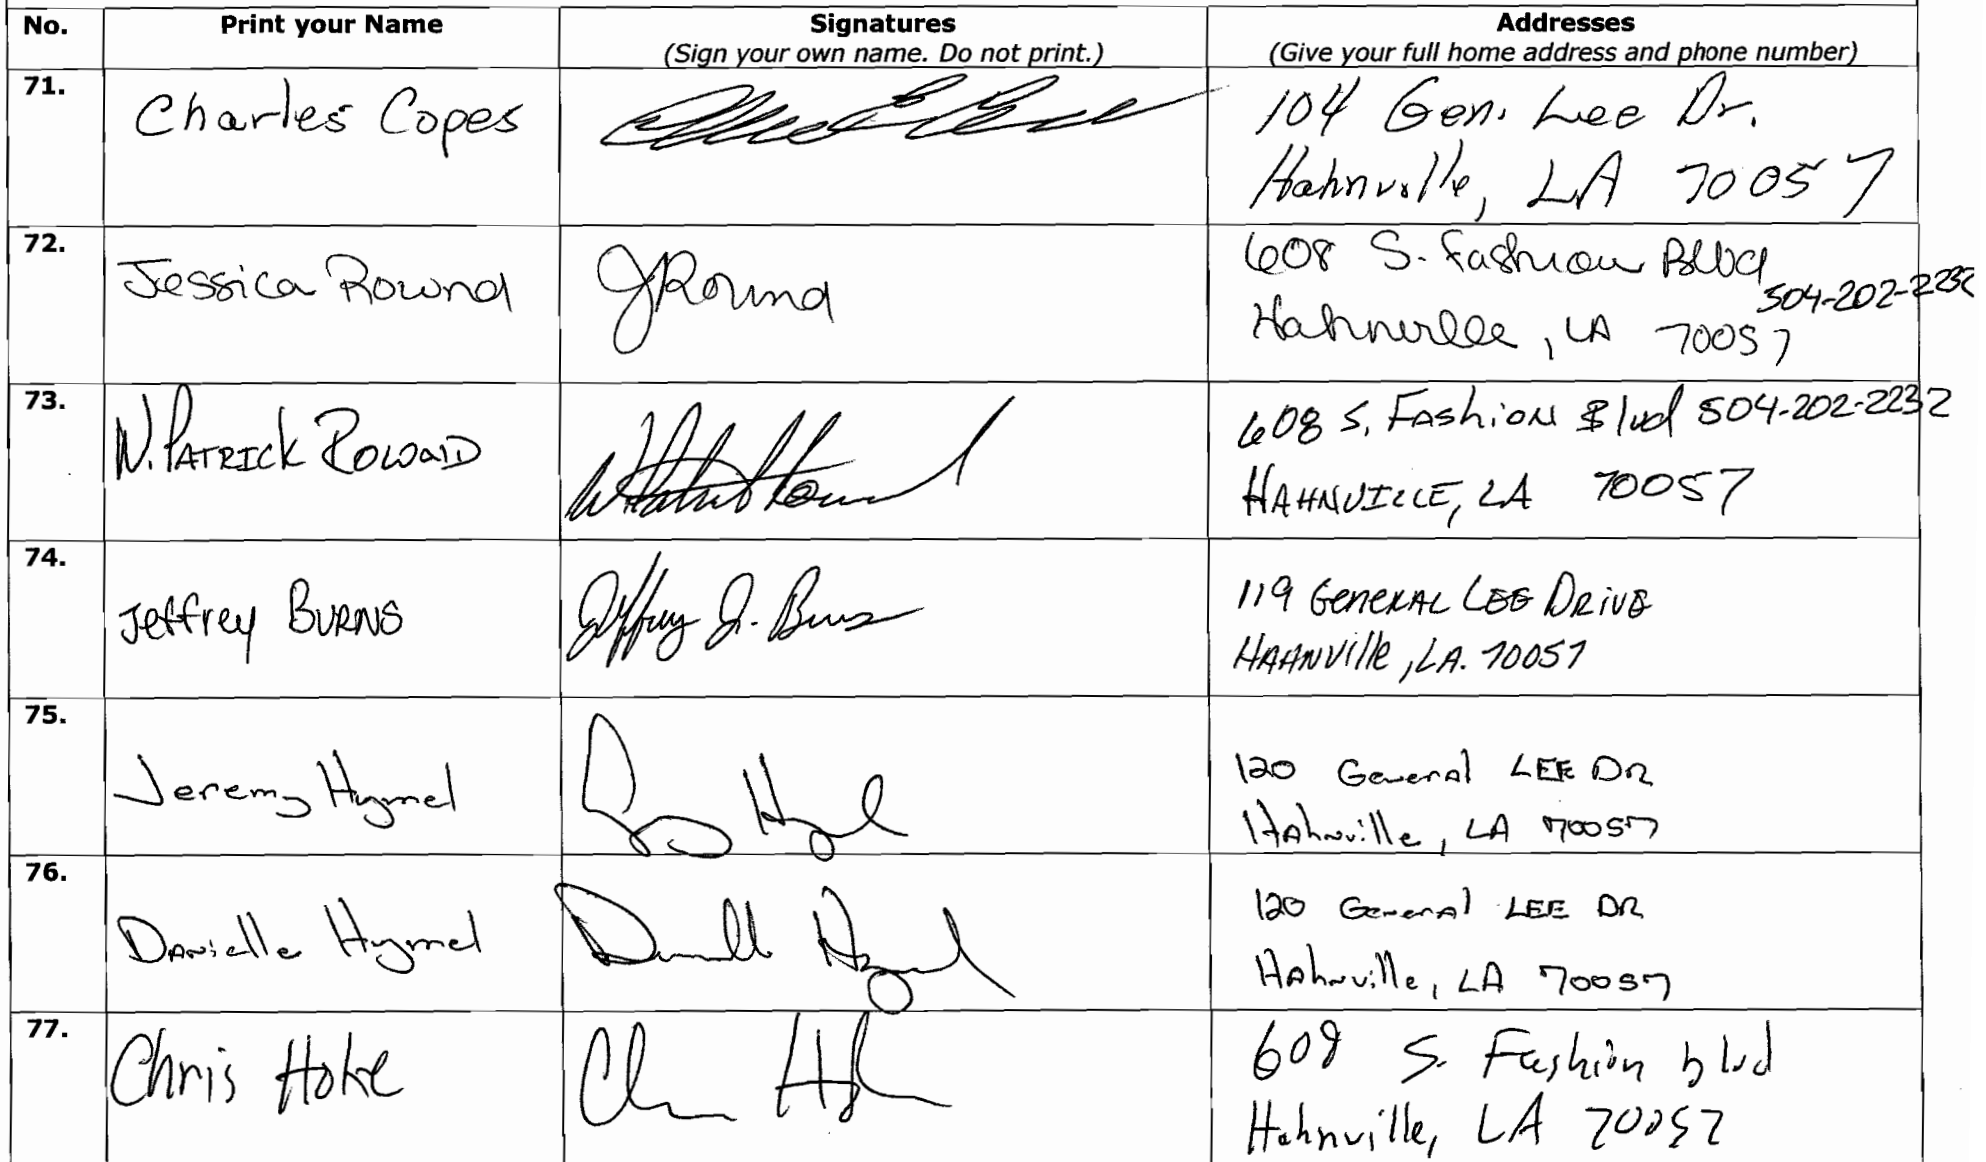 No. Print your Name Signatures Addresses
(Sign your own name. Do not print.) (Give your full home address and phone number)
71. Charles Copes 104 Gen. Lee Dr.
Hahnville, LA 70057
72. Jessica Rownd JRownd 608 S. Fashion Blvd
504-202-2232
Hahnville, LA 70057
73. W. PATRICK ROWND 608 S. FASHION Blvd 504-202-2232
HAHNVILLE, LA 70057
74. Jeffrey BURNS Jeffrey J. Burns 119 GENERAL LEE DRIVE
HAHNVille, LA. 70057
75. Jeremy Hymel 120 General LEE DR
HAhnville, LA 70057
76. DANielle Hymel Danielle Hymel 120 General LEE DR
HAhnville, LA 70057
77. Chris Hoke 608 S. Fashion blvd
Hahnville, LA 70057